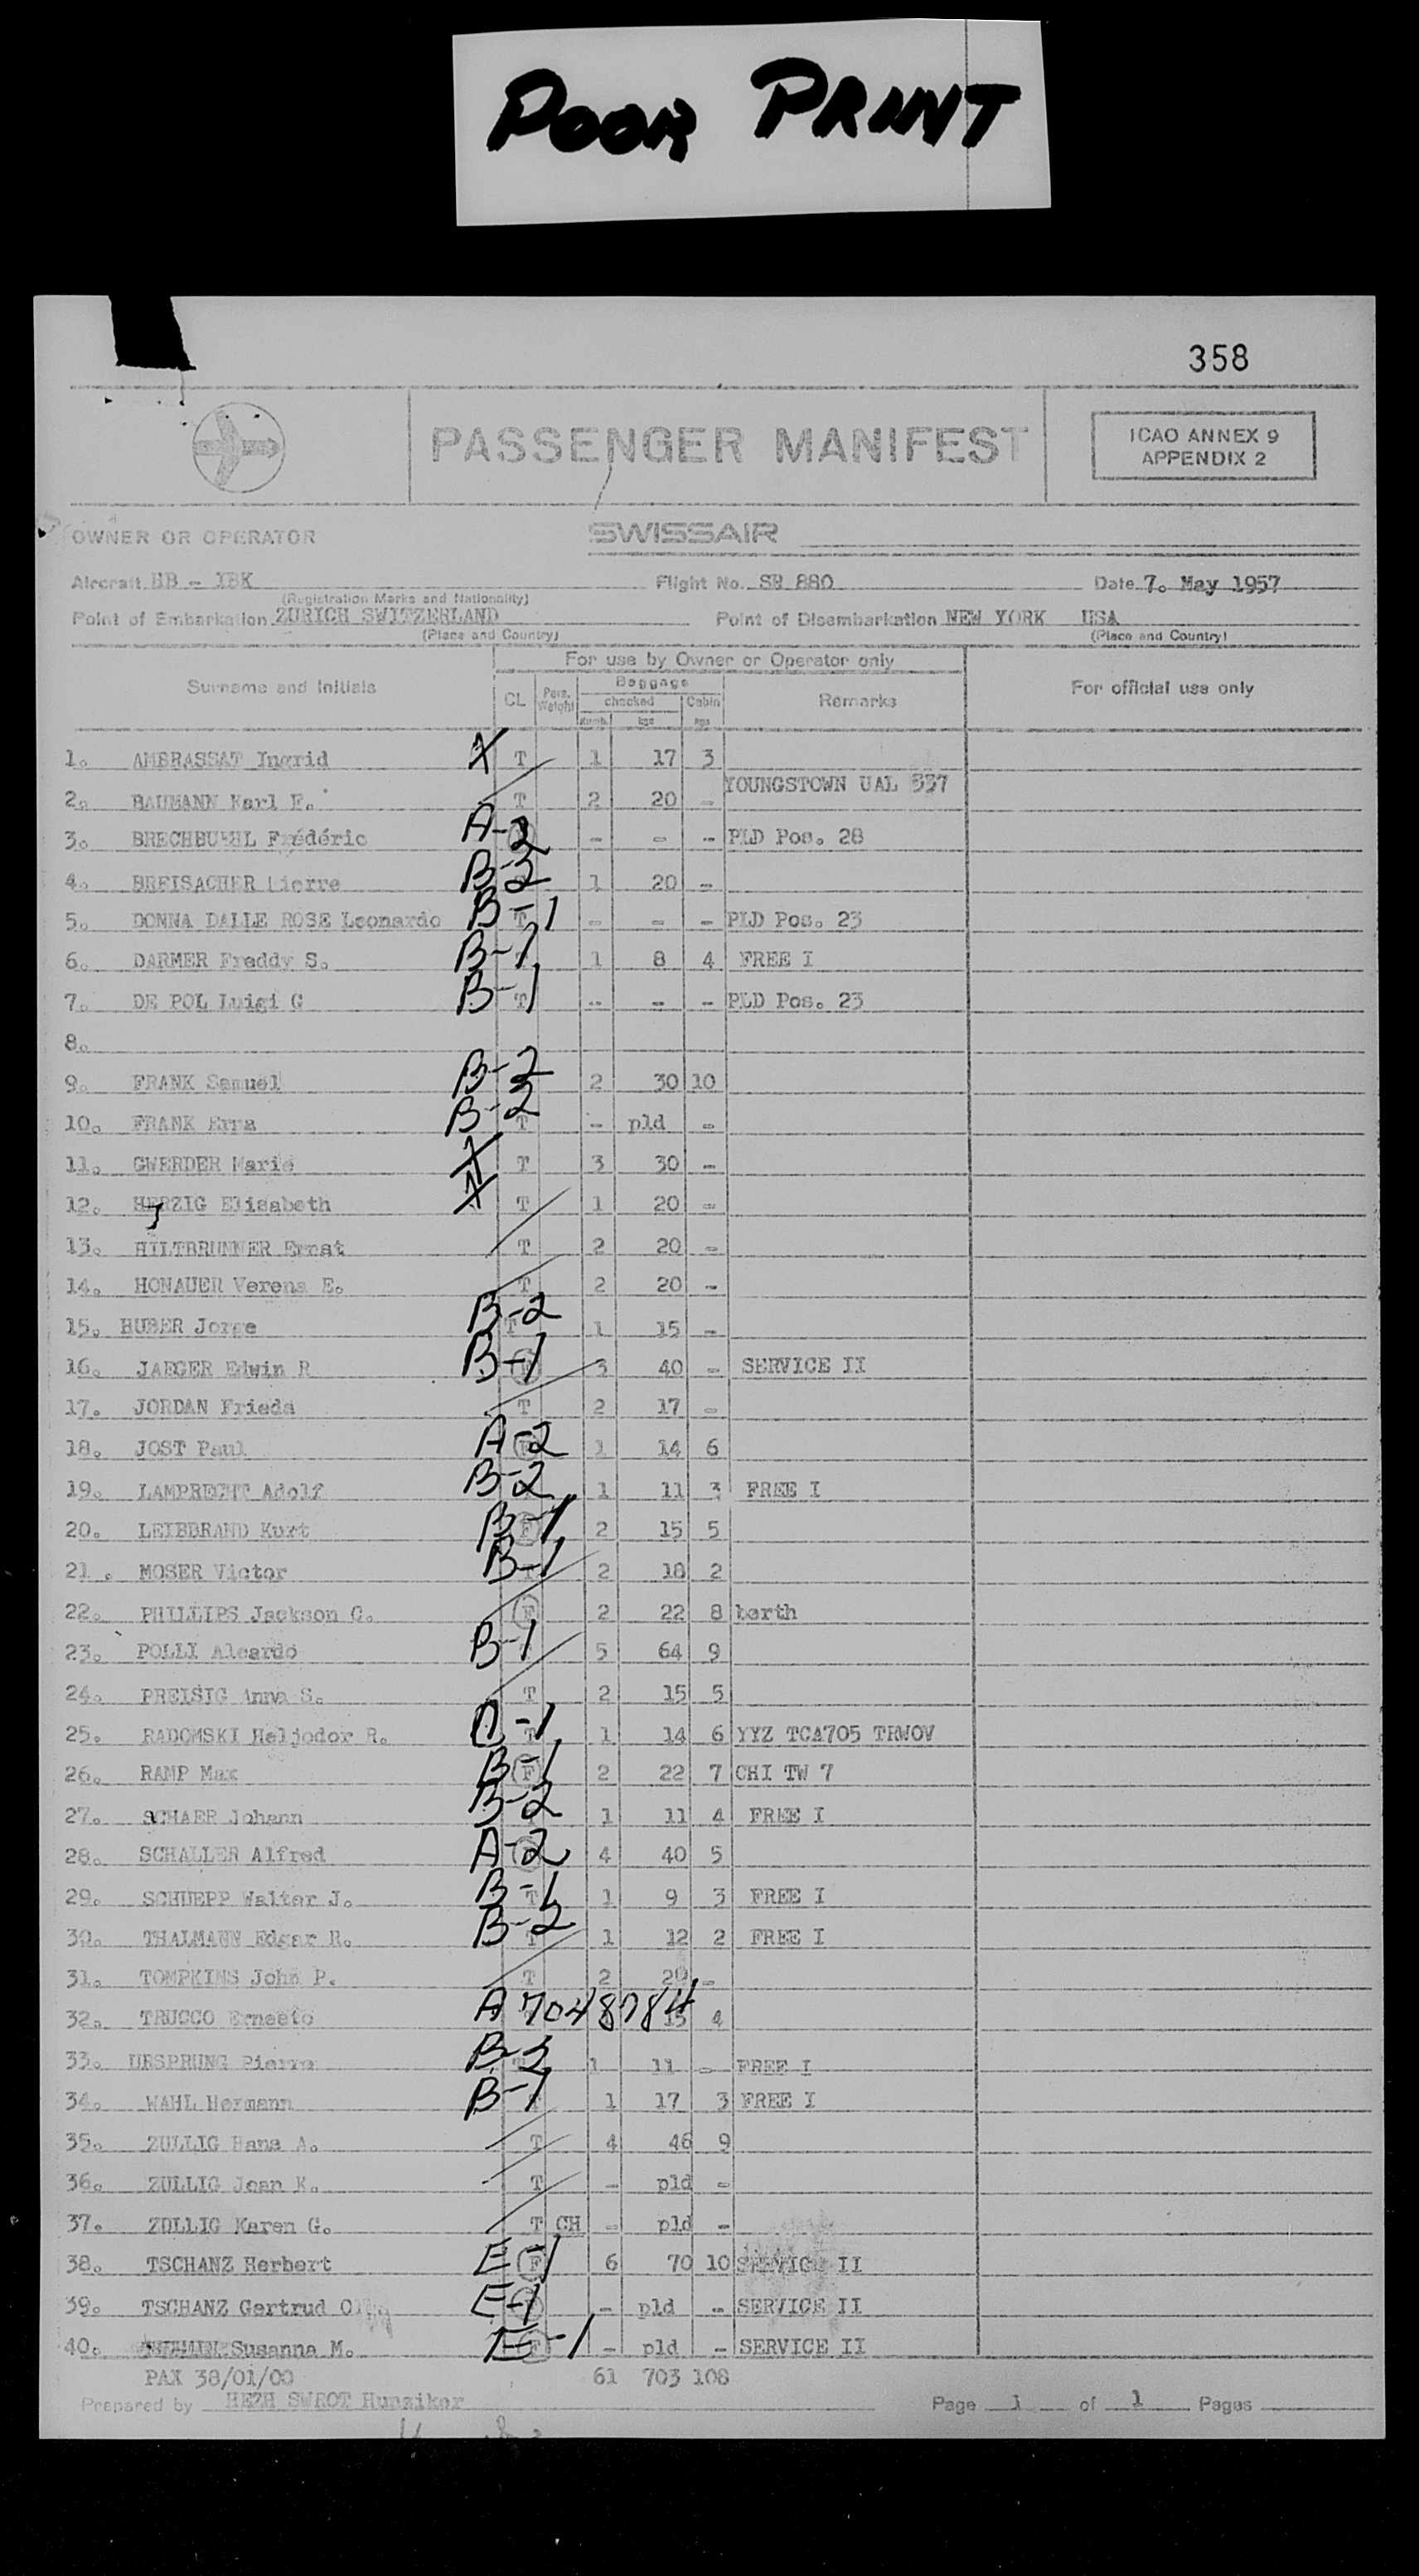 POOR PRINT
358
PASSENGER MANIFEST
ICAO ANNEX 9
APPENDIX 2
OWNER OR OPERATOR SWISSAIR
Aircraft HB - IBK Flight No. SR 880 Date 7. May 1957
(Registration Marks and Nationality)
Point of Embarkation ZURICH SWITZERLAND Point of Disembarkation NEW YORK USA
(Place and Country) (Place and Country)
For use by Owner or Operator only
Surname and Initials CL Pers. Weight Baggage checked Cabin Remarks For official use only
numb. kgs kgs
1. AMBRASSAT Ingrid X T 1 17 3
YOUNGSTOWN UAL 337
2. BAUMANN Karl F. T 2 20 -
3. BRECHBUEHL Frédéric A-2 - - - PLD Pos. 28
4. BREISACHER Pierre B-2 1 20 -
5. DONNA DALLE ROSE Leonardo B-1 T - - - PLD Pos. 23
6. DARMER Freddy S. B-1 1 8 4 FREE I
7. DE POL Luigi G B-1 T - - - PLD Pos. 23
8.
9. FRANK Samuel B-2 2 30 10
10. FRANK Erra B-2 T - pld -
11. GWERDER Marie X T 3 30 -
12. HERZIG Elisabeth X T 1 20 -
13. HILTBRUNNER Ernst T 2 20 -
14. HONAUER Verena E. T 2 20 -
15. HUBER Jorge B-2 T 1 15 -
16. JAEGER Edwin R B-1 3 40 - SERVICE II
17. JORDAN Frieda T 2 17 -
18. JOST Paul A-2 F 1 14 6
19. LAMPRECHT Adolf B-2 1 11 3 FREE I
20. LEIBBRAND Kurt B-1 F 2 15 5
21. MOSER Victor B-1 T 2 18 2
22. PHILLIPS Jackson G. F 2 22 8 berth
23. POLLI Alcardo B-1 5 64 9
24. PREISIG Anna S. T 2 15 5
25. RADOMSKI Heljodor R. T 1 14 6 YYZ TCA705 TRWOV
26. RAMP Max B-1 F 2 22 7 CHI TW 7
27. SCHAER Johann B-2 1 11 4 FREE I
28. SCHALLER Alfred A-2 4 40 5
29. SCHUEPP Walter J. B-1 T 1 9 3 FREE I
30. THALMANN Edgar R. B-2 T 1 12 2 FREE I
31. TOMPKINS John P. T 2 20 -
32. TRUCCO Ernesto A 7048784 15 4
33. URSPRUNG Pierre B-2 T 1 11 - FREE I
34. WAHL Hermann B-1 T 1 17 3 FREE I
35. ZULLIG Hans A. T 4 46 9
36. ZULLIG Jean K. T - pld -
37. ZULLIG Karen G. T CH - pld -
38. TSCHANZ Herbert E-1 F 6 70 10 SERVICE II
39. TSCHANZ Gertrud O. E-1 - pld - SERVICE II
40. Susanna M. E-1 F - pld - SERVICE II
PAX 38/01/00 61 703 108
Prepared by HEZH SWROT Hunziker Page 1 of 1 Pages